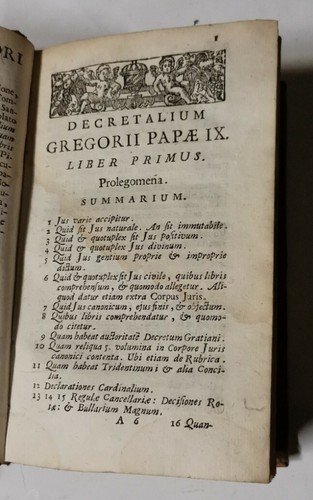 ORI
1
DECRETALIUM
GREGORII PAPÆ IX.
LIBER PRIMUS.
Prolegomena.
SUMMARIUM.
1 Jus varie accipitur.
2 Quid sit Jus naturale. An sit immutabile.
3 Quid & quotuplex sit Jus positivum.
4 Quid & quotuplex sit Jus divinum.
5 Quid Jus gentium proprie & improprie
dictum.
6 Quid & quotuplex sit Jus civile, quibus libris
comprehensum, & quomodo allegetur. Ali-
quod datur etiam extra Corpus Juris.
7 Quid Jus canonicum, ejus finis, & objectum.
8 Quibus libris comprehendatur, & quomo-
do citetur.
9 Quam habeat auctoritatē Decretum Gratiani.
10 Quam reliqua 5. volumina in Corpore Juris
canonici contenta. Ubi etiam de Rubrica.
11 Quam habeant Tridentinum & alia Conci-
lia.
12 Declarationes Cardinalium.
13 14 15 Regulæ Cancellariæ: Decisiones Ro-
tæ: & Bullarium Magnum.
A 6
16 Quan-